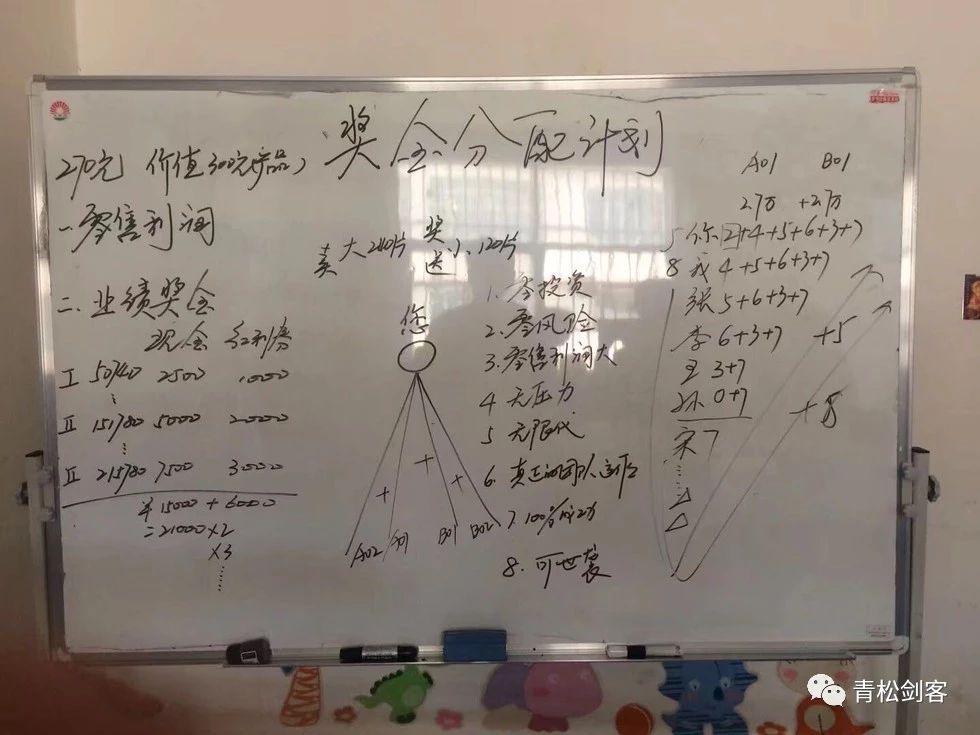 奖金分配计划
270元 价值300元(产品)
一.零售利润
卖大240片 奖送小120片
二.业绩奖金
现金 红利券
I 50740 2500 1000
II 151780 5000 2000
II 215780 7500 3000
¥15000 + 6000
=21000×2
×3
您
+ + +
A02 A01 B01 B02
1. 零投资
2. 零风险
3. 零售利润大
4 无压力
5 无限代
6. 真正的团队运作
7 100%成功
8. 可世袭
A01 B01
2万 +2万
5 你 2+4+5+6+3+7
8 我 4+5+6+3+7
张 5+6+3+7
李 6+3+7 +5
王 3+7
孙 0+7 +8
宋 7
青松剑客